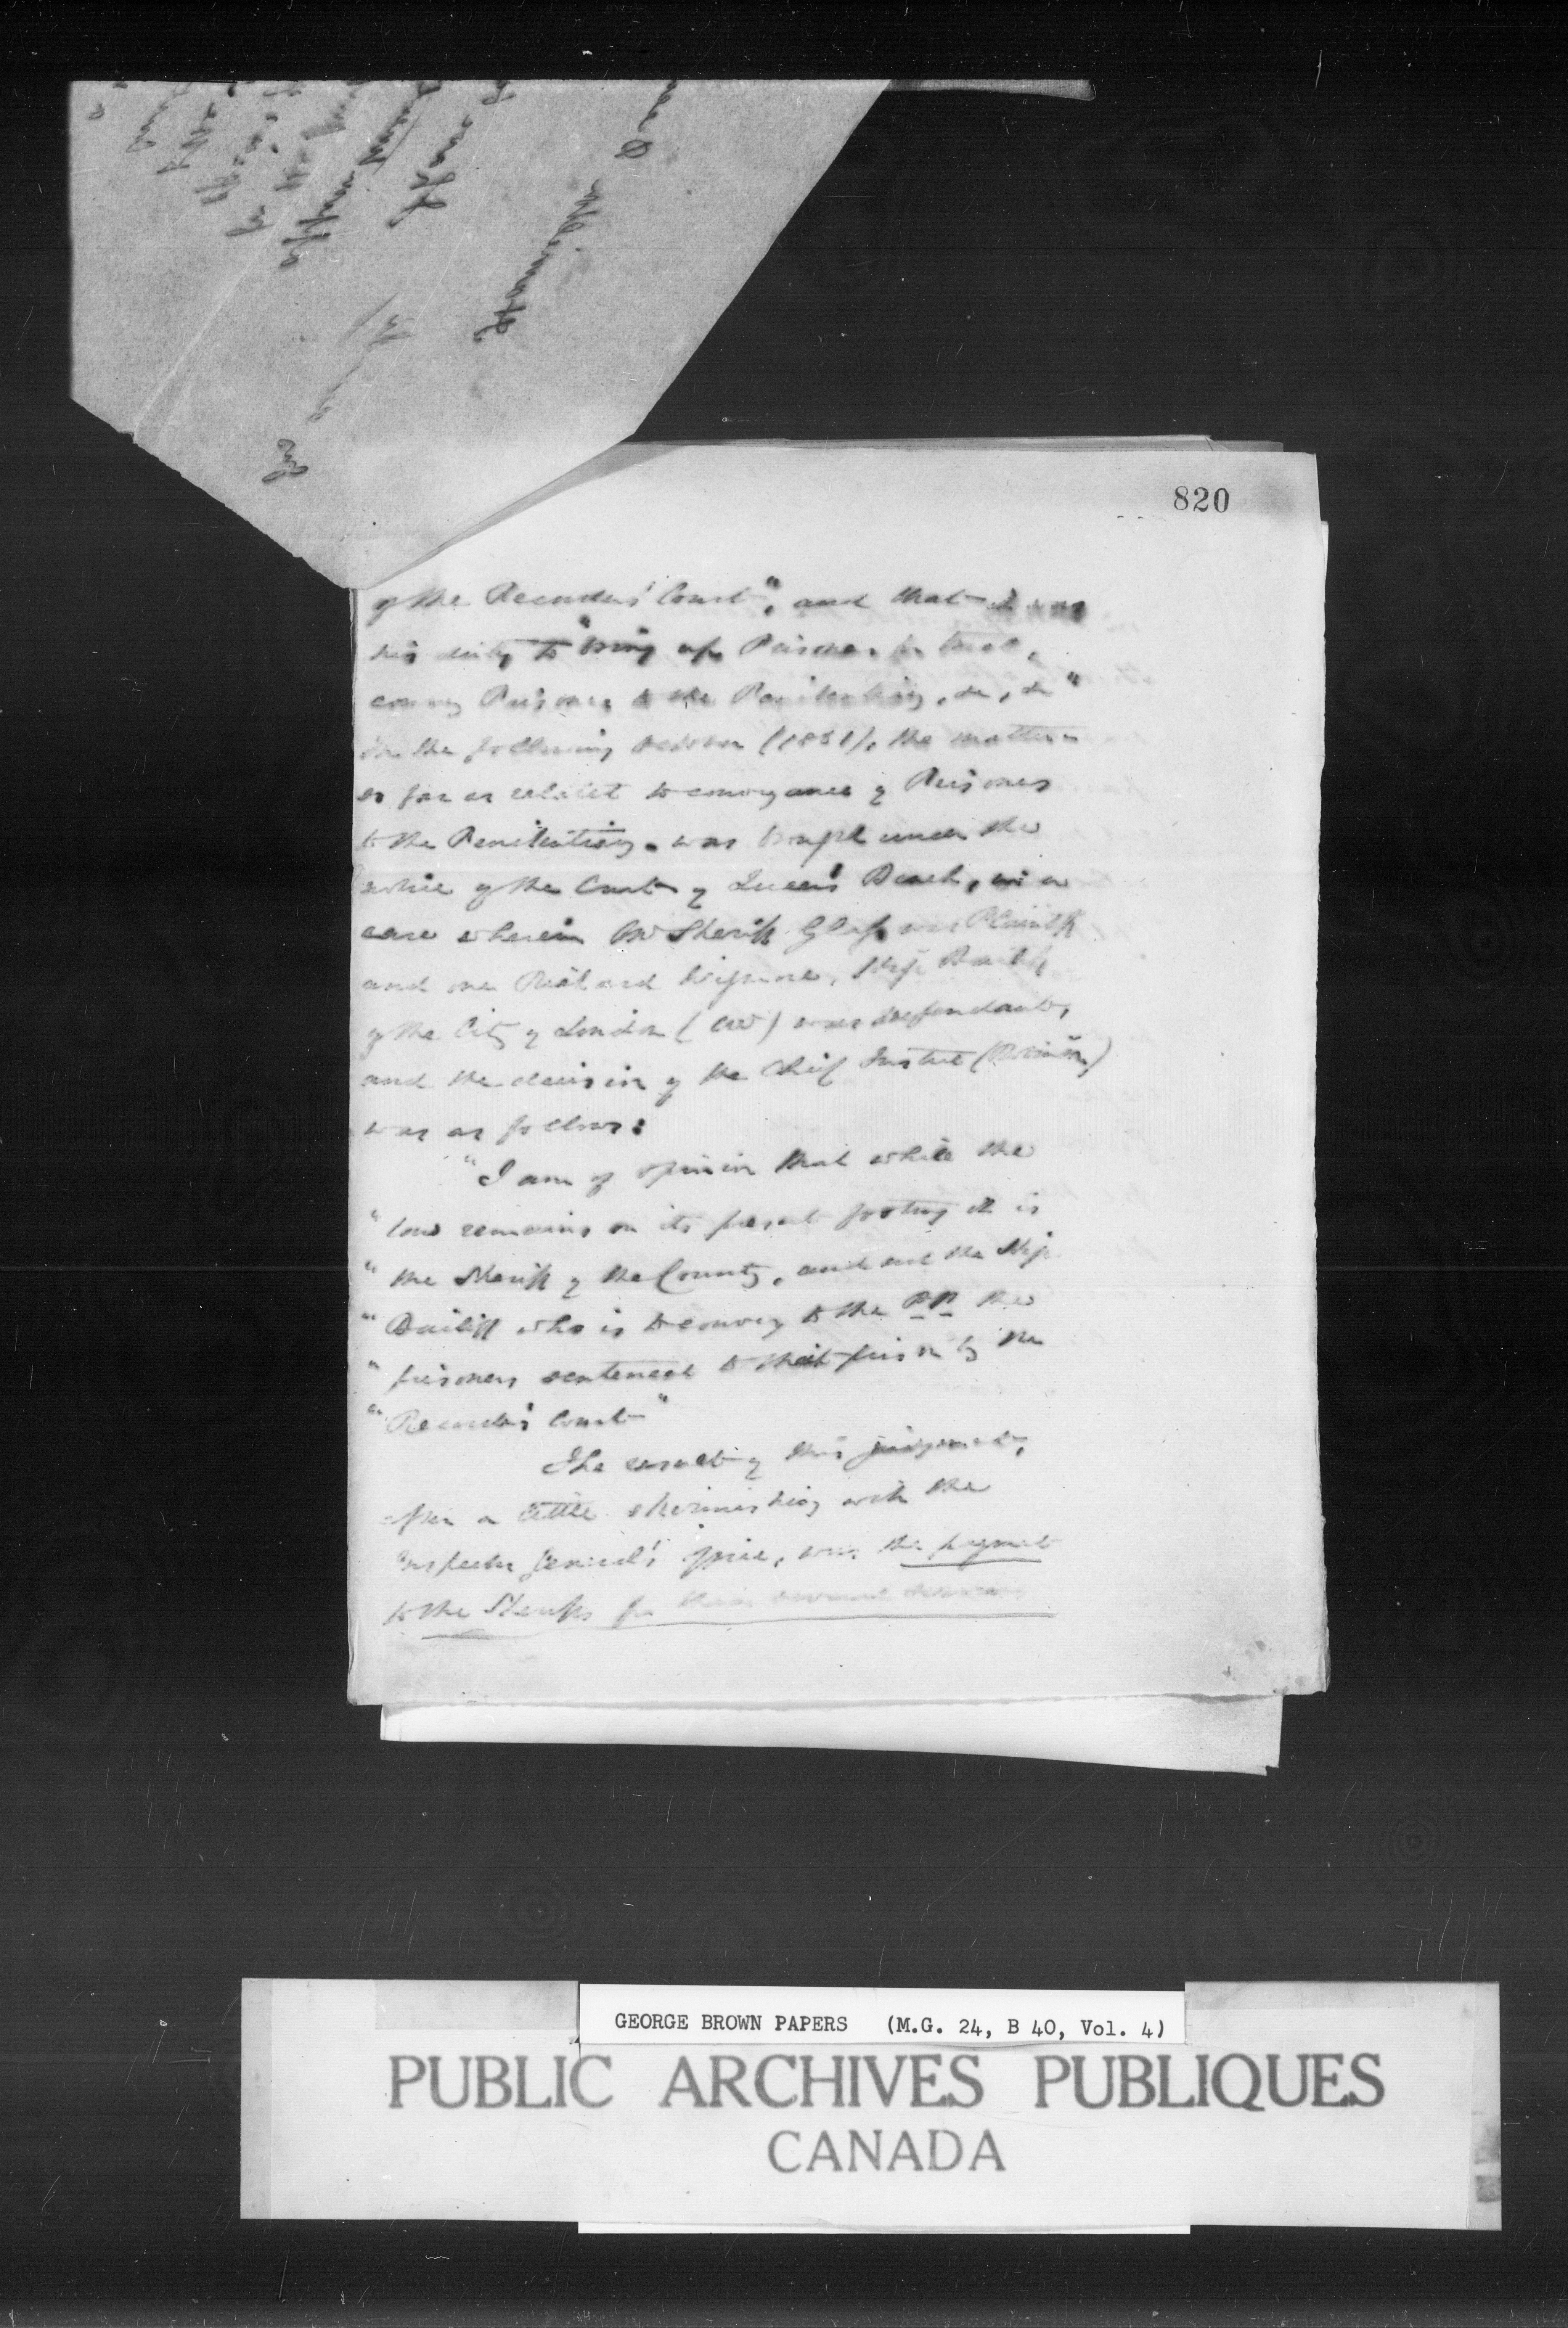 820
of the Recorders' Court", and that it was
his duty to "bring up Prisoners for trial,
convey Prisoners to the Penitentiary, &c, &c"
In the following October (1861), the matter
so far as relates to conveyance of Prisoners
to the Penitentiary was brought under the
notice of the Court of Queen's Bench, in a
case wherein Mr Sheriff Glass was Plaintiff
and one Richard Wigmore, High Bailiff
of the City of London (CW) was defendant,
and the decision of the Chief Justice (Robinson)
was as follows:
"I am of opinion that while the
"law remains on its present footing it is
"the Sheriff of the County, and not the High
"Bailiff who is to convey to the PP the
"prisoners sentenced to that prison by the
"Recorder's Court"
The result of this judgment,
after a little skirmishing with the
Inspector General's office, was the payment
to the Sheriffs for their several
GEORGE BROWN PAPERS (M.G. 24, B 40, Vol. 4)
PUBLIC ARCHIVES PUBLIQUES
CANADA